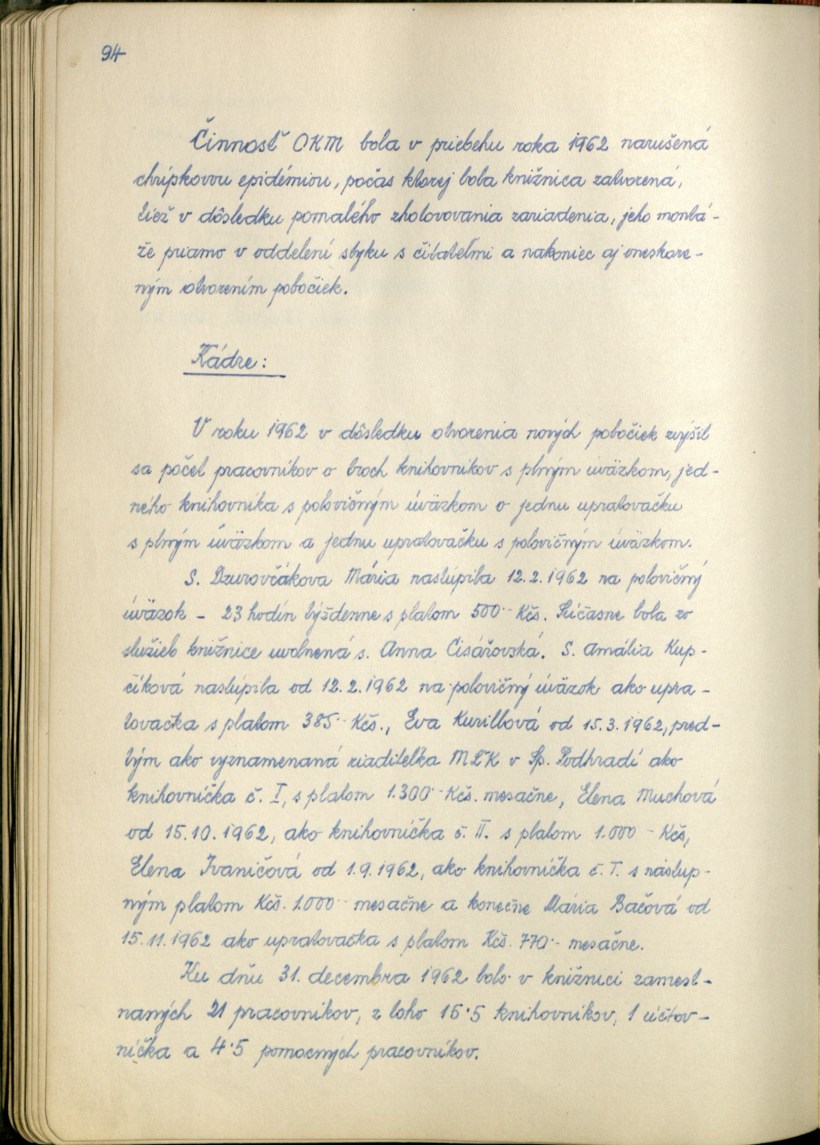 94
Činnosť OKM bola v priebehu roka 1962 narušená
chrípkovou epidémiou, počas ktorej bola knižnica zatvorená,
tiež v dôsledku pomalého zhotovovania zariadenia, jeho montá-
že priamo v oddelení styku s čitateľmi a nakoniec aj oneskore-
ným otvorením pobočiek.
Kádre:
V roku 1962 v dôsledku otvorenia nových pobočiek zvýšil
sa počet pracovníkov o troch knihovníkov s plným úväzkom, jed-
ného knihovníka s polovičným úväzkom o jednu upratovačku
s plným úväzkom a jednu upratovačku s polovičným úväzkom.
S. Dzurovčáková Mária nastúpila 12.2.1962 na polovičný
úväzok - 23 hodín týždenne s platom 500.- Kčs. Súčasne bola zo
služieb knižnice uvolnená s. Anna Cisářovská. S. Amália Kup-
číková nastúpila od 12.2.1962 na polovičný úväzok ako upra-
tovačka s platom 385.- Kčs., Eva Kurillová od 15.3.1962, pred-
tým ako vyznamenaná riaditeľka MĽK v Sp. Podhradí ako
knihovníčka č. I, s platom 1.300.- Kčs. mesačne, Elena Muchová
od 15.10.1962, ako knihovníčka č. II. s platom 1.000 - Kčs,
Elena Ivaničová od 1.9.1962, ako knihovníčka č. I. s nástup-
ným platom Kčs. 1.000.- mesačne a konečne Mária Bačová od
15.11.1962 ako upratovačka s platom Kčs. 770.- mesačne.
Ku dňu 31. decembra 1962 bolo v knižnici zamest-
naných 21 pracovníkov, z toho 15·5 knihovníkov, 1 účtov-
níčka a 4·5 pomocných pracovníkov.